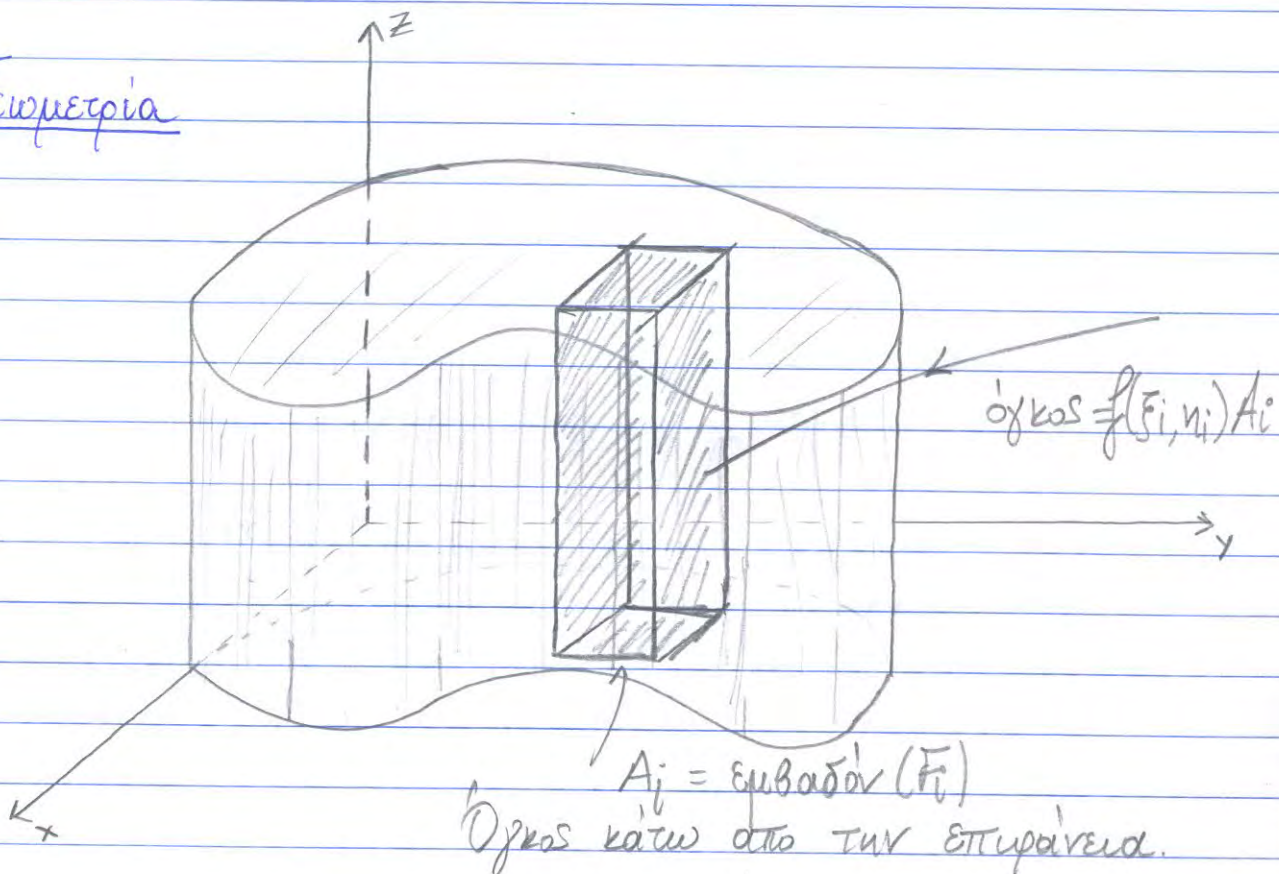 Γεωμετρία
z
όγκος = f(ξi, ηi) Ai
y
Ai = εμβαδόν (Fi)
x
Όγκος κάτω απο την επιφάνεια.